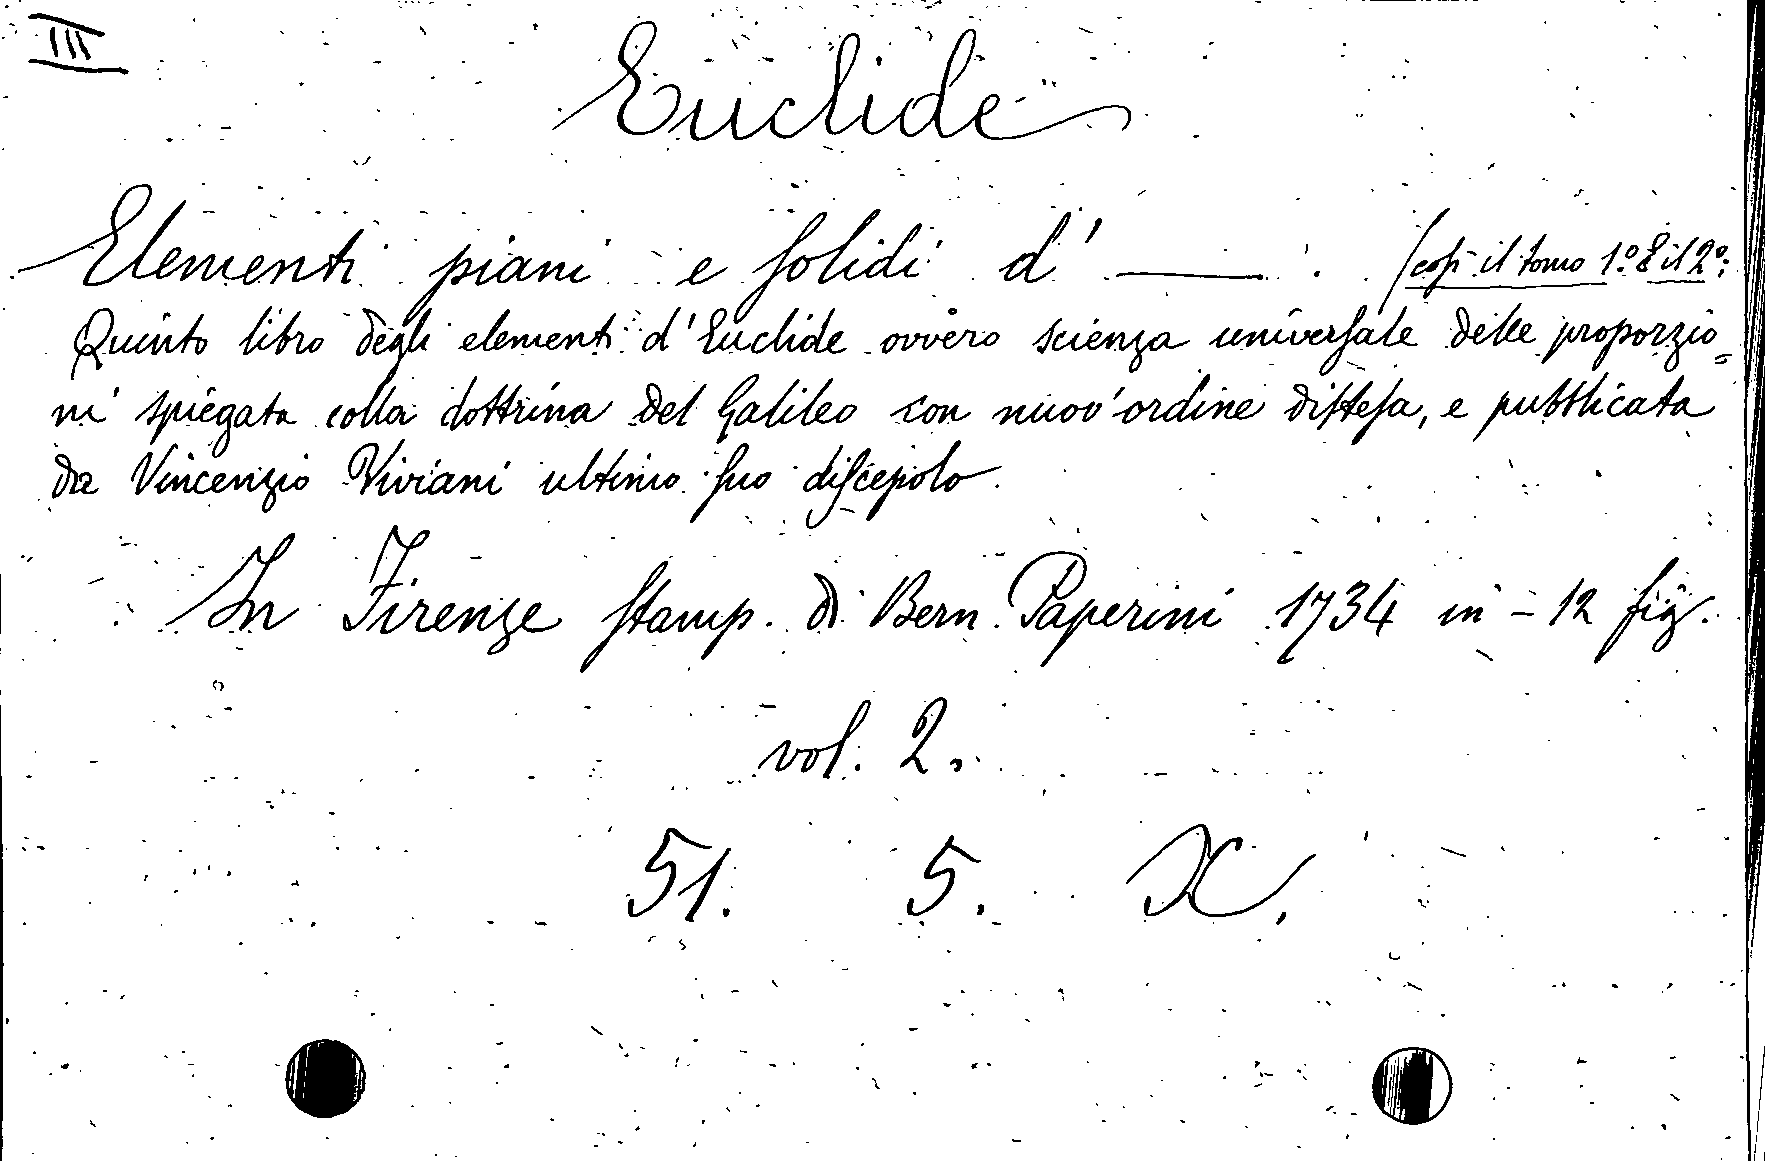 III
Euclide
Elementi piani e ſolidi d' ——— . (coſì il tomo 1º. E il 2º:
Quinto libro degli elementi d'Euclide ovvero scienza univerſale delle proporzio=
ni spiegata colla dottrina del Galileo con nuov'ordine diſteſa, e pubblicata
da Vincenzio Viviani ultimo ſuo diſcepolo.
In Firenze ſtamp. di Bern. Paperini 1734 in-12 fig.
vol. 2.
51. 5. X.